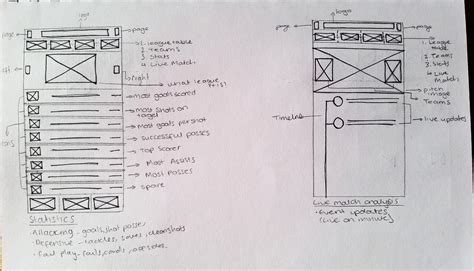 logo
page
page
1. league table
2. Teams
3. Stats
4. Live Match
left
bright
what league
this!
most goals scored
most shots on
target
most goals per shot
successful passes
Top Scorer
Most Assists
Most Passes
spare
icons
Statistics
- Attacking - goals, shot, passes
- Defensive - tackles, saves, clearshots
- Fair play - fouls, cards,
logo
page
page
1. League
table
2. Teams
3. Stats
4. Live
Match
pitch
image
Teams
Timeline
live updates
Live match analysis
- Event updates
(live on minute)